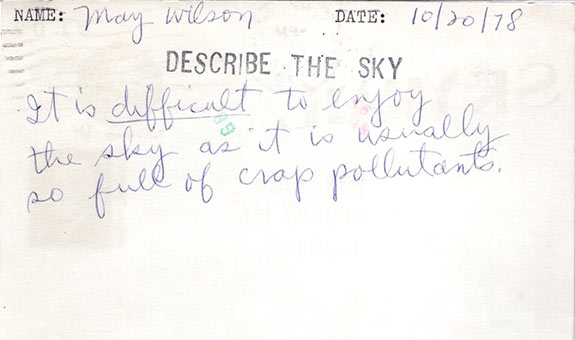 NAME: May Wilson DATE: 10/20/78
DESCRIBE THE SKY
It is difficult to enjoy
the sky as it is usually
so full of crap pollutants.